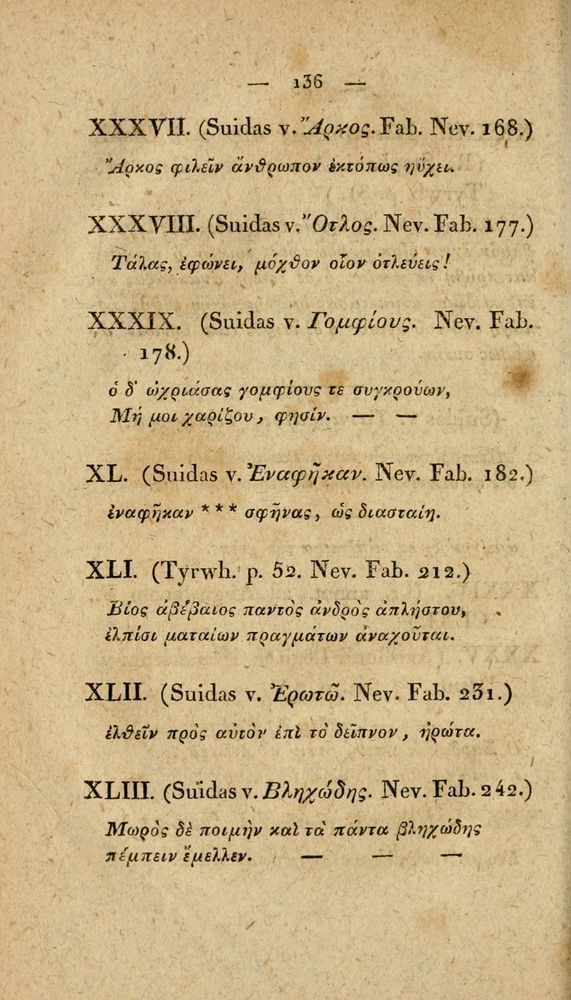 — 136 —
XXXVII. (Suidas v. Ἄρκος. Fab. Nev. 168.)
Ἄρκος φιλεῖν ἄνθρωπον ἐκτόπως ηὔχει.
XXXVIII. (Suidas v. Ὄτλος. Nev. Fab. 177.)
Τάλας, ἐφώνει, μόχθον οἷον ὀτλεύεις!
XXXIX. (Suidas v. Γομφίους. Nev. Fab.
178.)
ὁ δ' ὠχριάσας γομφίους τε συγκρούων,
Μή μοι χαρίζου, φησίν. — —
XL. (Suidas v. Ἐναφῆκαν. Nev. Fab. 182.)
ἐναφῆκαν *** σφῆνας, ὡς διασταίη.
XLI. (Tyrwh. p. 52. Nev. Fab. 212.)
Βίος ἀβέβαιος παντὸς ἀνδρὸς ἀπλήστου,
ἐλπίσι ματαίων πραγμάτων ἀναχοῦται.
XLII. (Suidas v. Ἐρωτῶ. Nev. Fab. 231.)
ἐλθεῖν πρὸς αὐτὸν ἐπὶ τὸ δεῖπνον, ἠρώτα.
XLIII. (Suidas v. Βληχώδης. Nev. Fab. 242.)
Μωρὸς δὲ ποιμὴν καὶ τὰ πάντα βληχώδης
πέμπειν ἔμελλεν. — — —